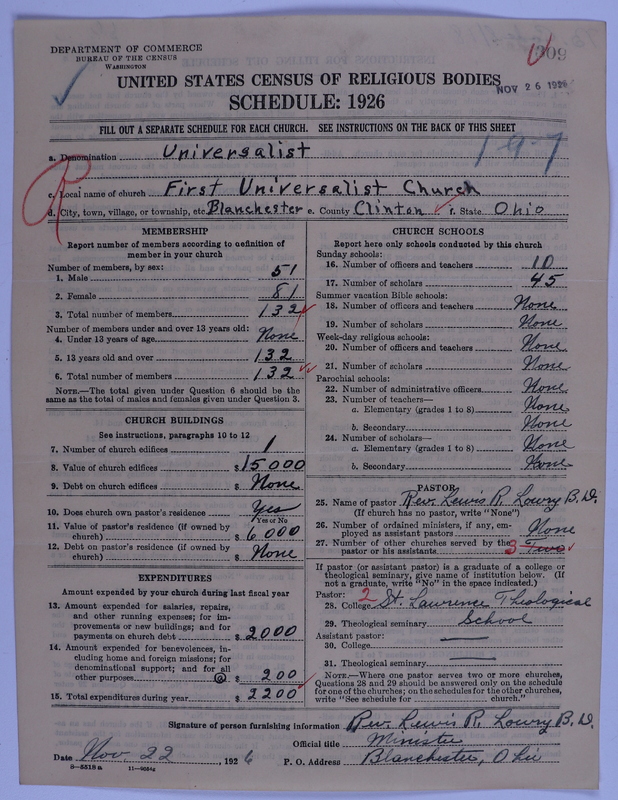 DEPARTMENT OF COMMERCE
BUREAU OF THE CENSUS
WASHINGTON
309
UNITED STATES CENSUS OF RELIGIOUS BODIES
NOV 26 1926
SCHEDULE: 1926
FILL OUT A SEPARATE SCHEDULE FOR EACH CHURCH. SEE INSTRUCTIONS ON THE BACK OF THIS SHEET
197
a. Denomination Universalist
c. Local name of church First Universalist Church
d. City, town, village, or township, etc. Blanchester e. County Clinton f. State Ohio
MEMBERSHIP
Report number of members according to definition of
member in your church
Number of members, by sex:
1. Male 51
2. Female 81
3. Total number of members 132
Number of members under and over 13 years old:
4. Under 13 years of age None
5. 13 years old and over 132
6. Total number of members 132
NOTE.—The total given under Question 6 should be the
same as the total of males and females given under Question 3.
CHURCH BUILDINGS
See instructions, paragraphs 10 to 12
7. Number of church edifices 1
8. Value of church edifices $15000
9. Debt on church edifices $ None
10. Does church own pastor's residence Yes
Yes or No
11. Value of pastor's residence (if owned by
church) $ 6000
12. Debt on pastor's residence (if owned by
church) $ None
EXPENDITURES
Amount expended by your church during last fiscal year
13. Amount expended for salaries, repairs,
and other running expenses; for im-
provements or new buildings; and for
payments on church debt $ 2000
14. Amount expended for benevolences, in-
cluding home and foreign missions; for
denominational support; and for all
other purposes $ 200
15. Total expenditures during year $ 2200
CHURCH SCHOOLS
Report here only schools conducted by this church
Sunday schools:
16. Number of officers and teachers 10
17. Number of scholars 45
Summer vacation Bible schools:
18. Number of officers and teachers None
19. Number of scholars None
Week-day religious schools:
20. Number of officers and teachers None
21. Number of scholars None
Parochial schools:
22. Number of administrative officers None
23. Number of teachers—
a. Elementary (grades 1 to 8) None
b. Secondary None
24. Number of scholars—
a. Elementary (grades 1 to 8) None
b. Secondary None
PASTOR
25. Name of pastor Rev. Lewis R. Lowry B.D.
(If church has no pastor, write "None")
26. Number of ordained ministers, if any, em-
ployed as assistant pastors None
27. Number of other churches served by the
pastor or his assistants 3 Two
If pastor (or assistant pastor) is a graduate of a college or
theological seminary, give name of institution below. (If
not a graduate, write "No" in the space indicated.)
Pastor: 2
28. College St. Lawrence Theological
29. Theological seminary School
Assistant pastor:
30. College
31. Theological seminary
NOTE.—Where one pastor serves two or more churches,
Questions 28 and 29 should be answered only on the schedule
for one of the churches; on the schedules for the other churches,
write "See schedule for church."
Signature of person furnishing information Rev. Lewis R. Lowry B.D.
Official title Minister
Date Nov. 22, 1926 P. O. Address Blanchester, Ohio
8—5518 a 11—9084g